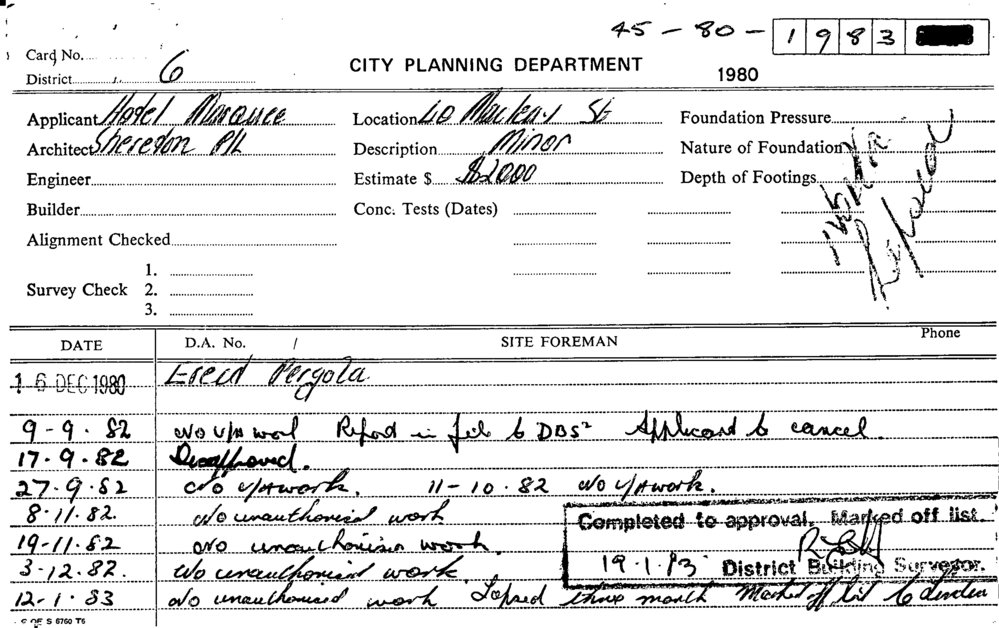 45 - 80 - 1983
Card No.
District 6
CITY PLANNING DEPARTMENT
1980
Applicant Hotel Marquee
Location 40 Macleay St
Foundation Pressure
Architect Sheredon P/L
Description Minor
Nature of Foundation
Engineer
Estimate $ $2000
Depth of Footings
Builder
Conc. Tests (Dates)
Alignment Checked
1.
Survey Check 2.
3.
DATE D.A. No. SITE FOREMAN Phone
16 DEC 1980 Erect Pergola
9-9-82 No u/a work Report in file to DBS² Applicant to cancel.
17.9.82 Disapproved.
27.9.82 No u/a work. 11-10-82 No u/a work.
8.11.82. No unauthorised work
Completed to approval. Marked off list.
19-11-82 No unauthorised work.
19.1.83 District Building Surveyor.
3-12-82. No unauthorised work.
12-1-83 No unauthorised work Lapsed three month Marked off list
C OF S 8760 T6